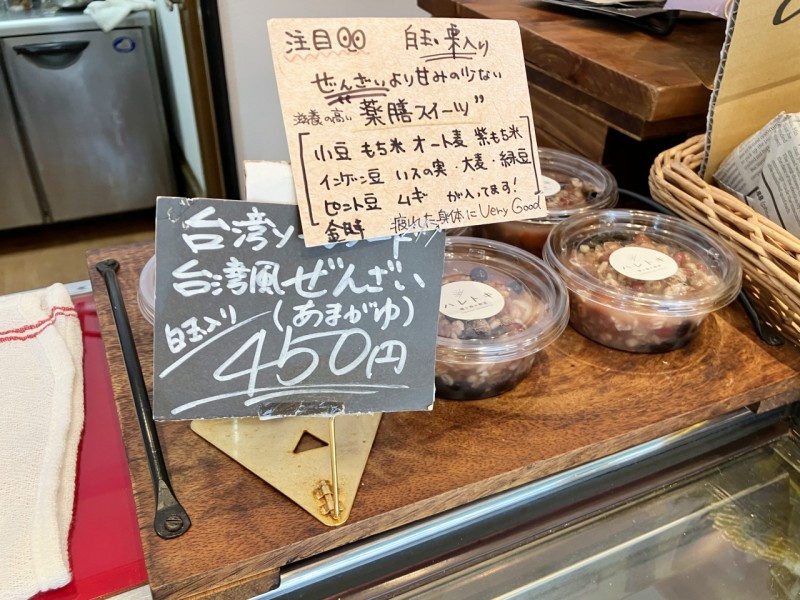 注目 白玉 栗入り
ぜんざいより甘みの少ない
滋養の高い "薬膳スイーツ"
小豆 もち米 オート麦 紫もち米
インゲン豆 ハスの実・大麦・緑豆
ピント豆 ムギ が入ってます!
金時 疲れた身体に Very Good
台湾
台湾風ぜんざい
白玉入り (あまがゆ)
450円
ハレトキ
ハレトキ